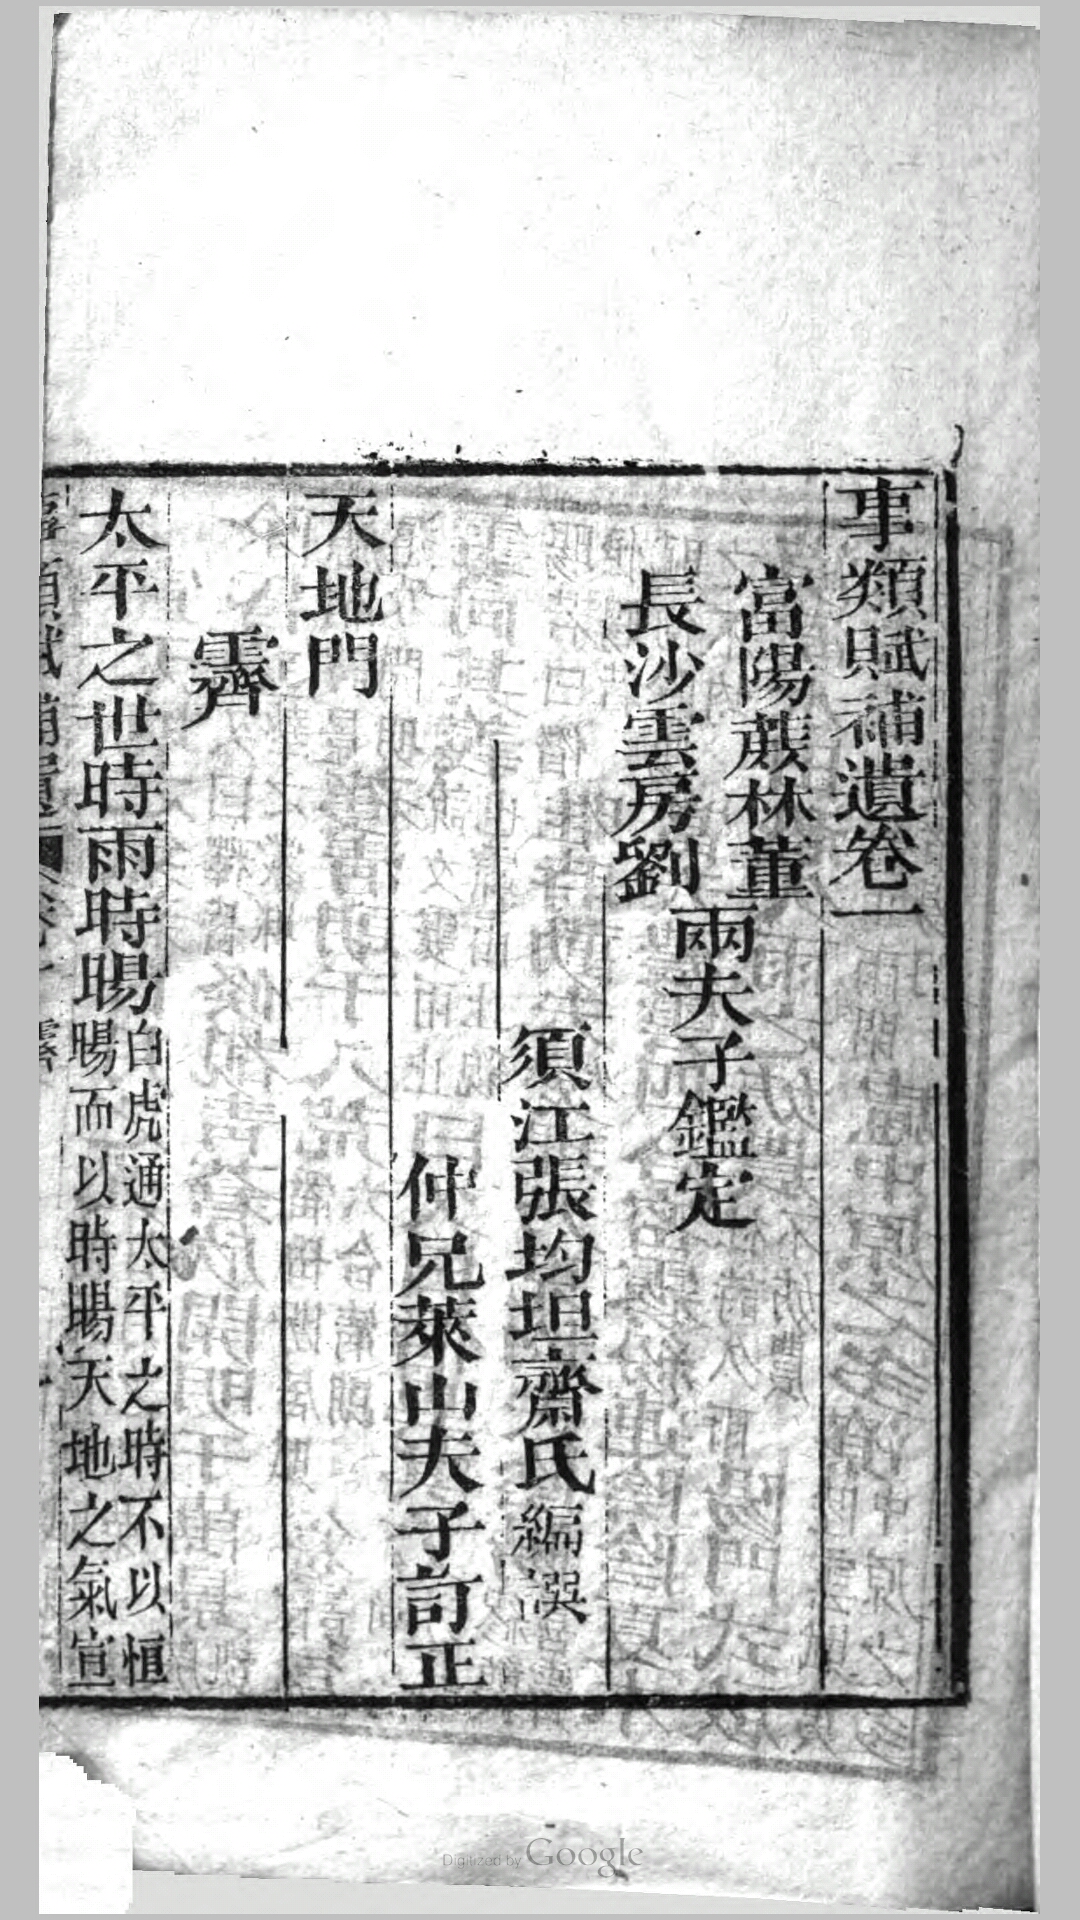 事類賦補遺卷一
富陽蔗林董
長沙雲房劉
兩夫子鑑定
須江張均坦齋氏編譔
仲兄萊山夫子訂正
天地門
霽
太平之世時雨時暘
白虎通太平之時不以恒
暘而以時暘天地之氣宣
Digitized by Google